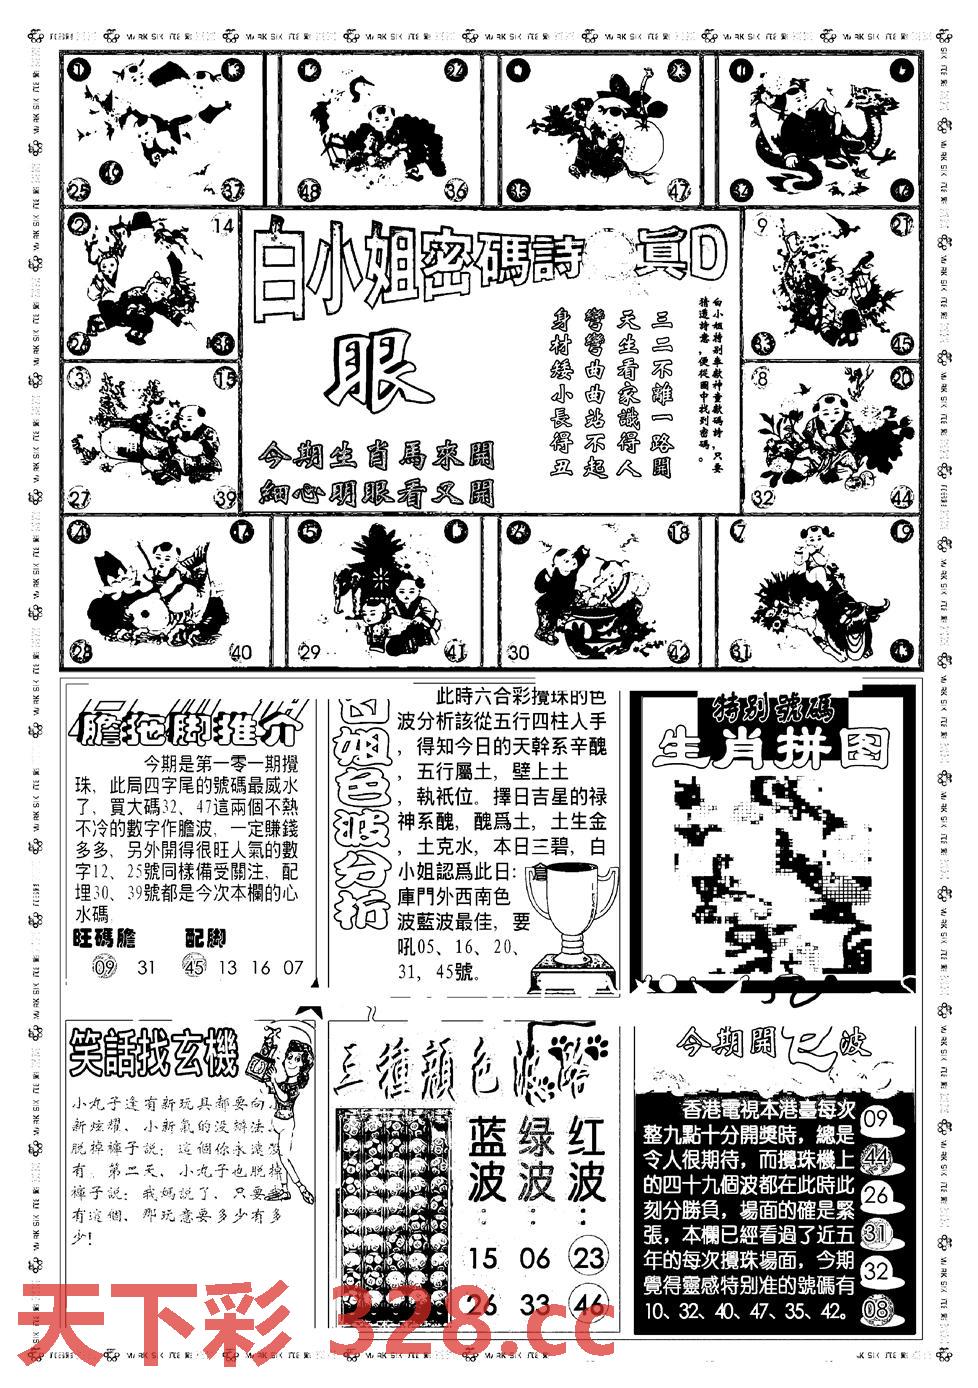 白小姐密碼詩
眞D
眼
今期生肖馬來開
細心明眼看又開
三二不離一路開
天生看家識得人
彎彎曲曲站不起
身材矮小長得丑
白小姐特别奉獻神童獻碼詩，只要
猜透詩意，便從圖中找到密碼。
25
37
48
36
35
47
2
14
9
21
33
45
3
15
27
39
8
20
32
44
28
40
5
29
41
18
30
42
7
19
31
膽拖脚推介
今期是第一零一期攪
珠，此局四字尾的號碼最威水
了，買大碼32、47這兩個不熱
不冷的數字作膽波，一定賺錢
多多，另外開得很旺人氣的數
字12、25號同樣備受關注，配
埋30、39號都是今次本欄的心
水碼
旺碼膽 配脚
09 31 45 13 16 07
姐色波分析
此時六合彩攪珠的色
波分析該從五行四柱人手
，得知今日的天幹系辛醜
，五行屬土，壁上土
，執衹位。擇日吉星的禄
神系醜，醜爲土，土生金
，土克水，本日三碧，白
小姐認爲此日：倉
庫門外西南色
波藍波最佳，要
吼05、16、20、
31、45號。
特别號碼
生肖拼图
笑話找玄機
小丸子逢有新玩具都要向
新炫耀、小新氣的没辦法、
脱掉褲子説：這個你永遠没
有。第二天、小丸子也脱掉
褲子説：我媽説了、只要
有這個、那玩意要多少有多
少！
三種顔色波路
蓝波： 绿波： 红波：
15 06 23
26 33 46
今期開 波
香港電視本港臺每次
整九點十分開獎時，總是
令人很期待，而攪珠機上
的四十九個波都在此時此
刻分勝負，場面的確是緊
張，本欄已經看過了近五
年的每次攪珠場面，今期
覺得靈感特别准的號碼有
10、32、40、47、35、42。
09
44
26
31
32
08
天下彩 328.cc